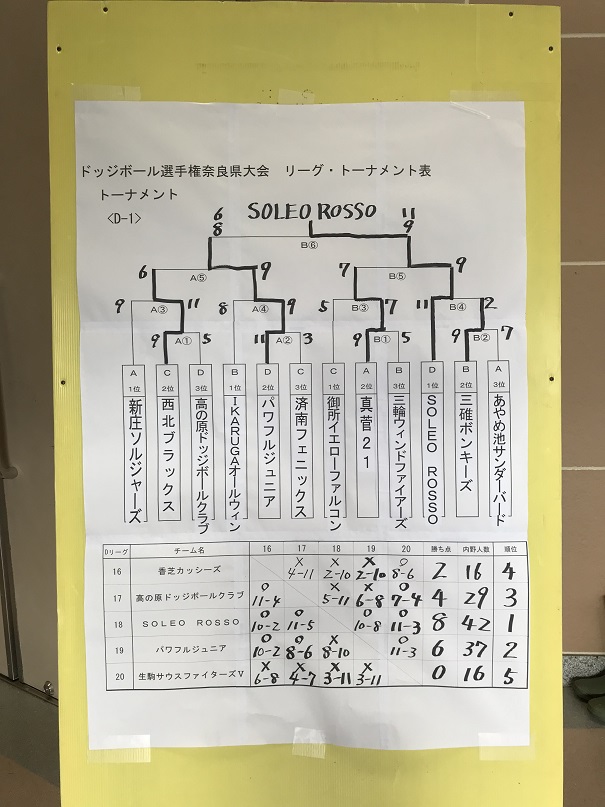 ドッジボール選手権奈良県大会 リーグ・トーナメント表
トーナメント
<D-1>
SOLEO ROSSO
6 11
8 9
B⑥
6 9 7 9
A⑤ B⑤
9 11 8 9 5 7 11 2
A③ A④ B③ B④
9 5 11 3 9 5 9 7
A① A② B① B②
A C D B D C C A B D B A
1位 2位 3位 1位 2位 3位 1位 2位 3位 1位 2位 3位
新庄ソルジャーズ
西北ブラックス
高の原ドッジボールクラブ
IKARUGAオールウィン
パワフルジュニア
済南フェニックス
御所イエローファルコン
真菅21
三輪ウィンドファイアーズ
SOLEO ROSSO
三碓ボンキーズ
あやめ池サンダーバード
Dリーグ チーム名 16 17 18 19 20 勝ち点 内野人数 順位
16 香芝カッシーズ × 4-11 × 2-10 × 2-10 ○ 8-6 2 16 4
17 高の原ドッジボールクラブ ○ 11-4 × 5-11 × 6-8 ○ 7-4 4 29 3
18 SOLEO ROSSO ○ 10-2 ○ 11-5 ○ 10-8 ○ 11-3 8 42 1
19 パワフルジュニア ○ 10-2 ○ 8-6 × 8-10 ○ 11-3 6 37 2
20 生駒サウスファイターズV × 6-8 × 4-7 × 3-11 × 3-11 0 16 5